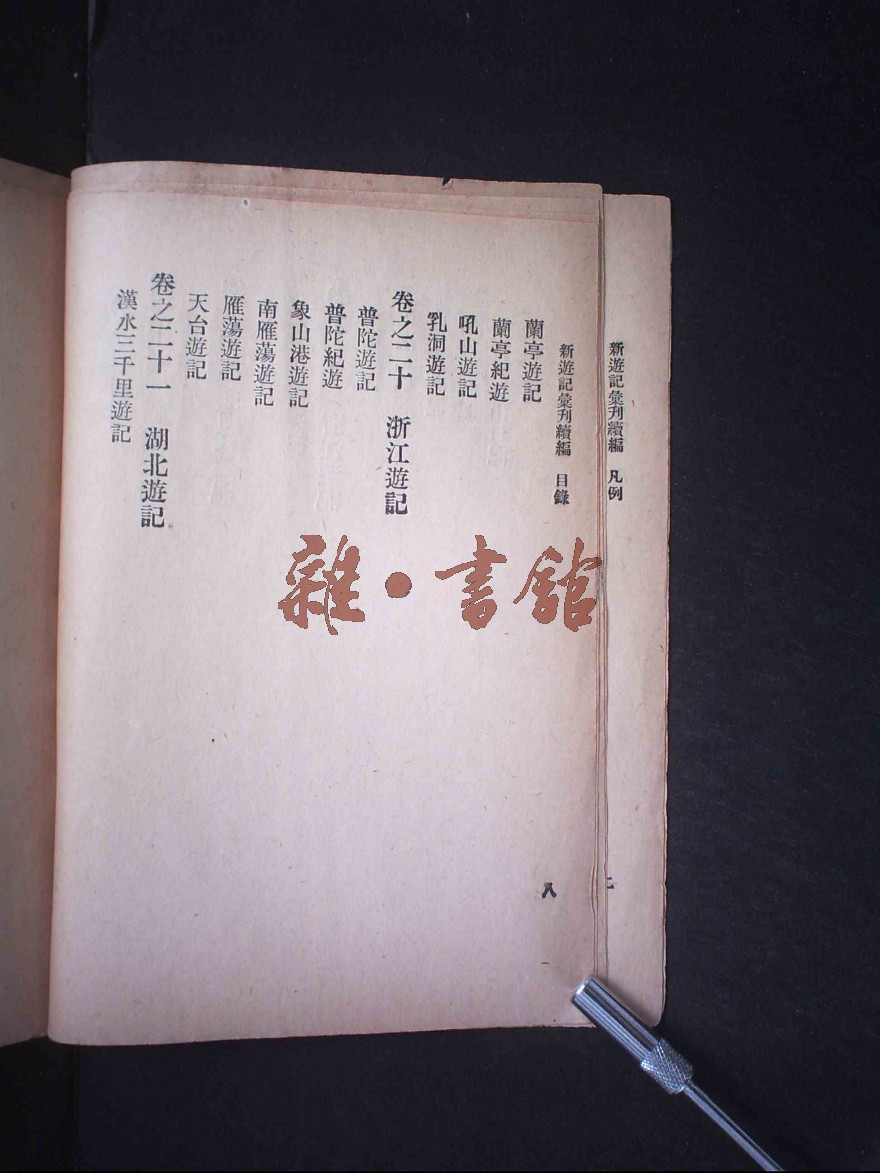 新遊記彙刋續編　凡例
新遊記彙刋續編　目錄
蘭亭遊記
蘭亭紀遊
吼山遊記
乳洞遊記
卷之二十　浙江遊記
普陀遊記
普陀紀遊
象山港遊記
南雁蕩遊記
雁蕩遊記
天台遊記
卷之二十一　湖北遊記
漢水三千里遊記
八
雜·書館